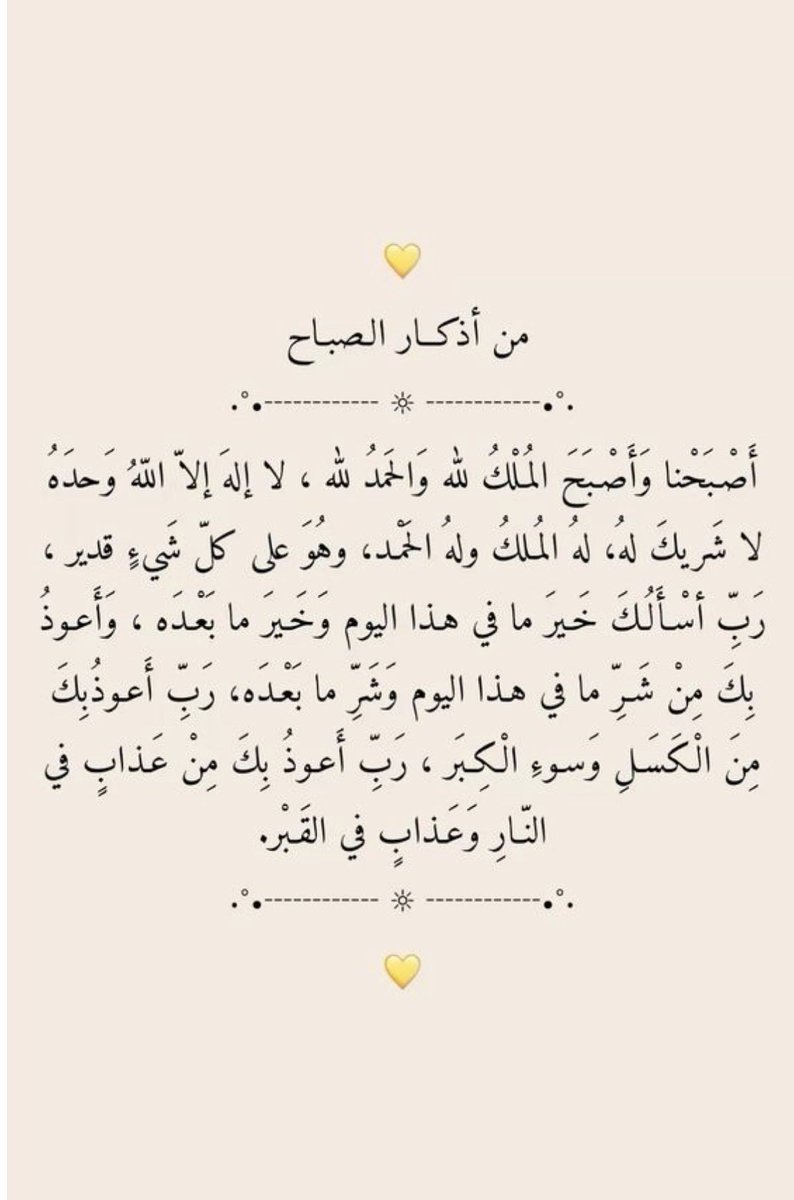 💛
من أذكــار الـصبـاح
.°•------------ ☼ ------------•°.
أَصْـبَحْنا وَأَصْـبَحَ المُـلْكُ لله وَالحَمدُ لله ، لا إلهَ إلاّ اللّهُ وَحدَهُ
لا شَريكَ لهُ، لهُ المُـلكُ ولهُ الحَمْـد، وهُوَ على كلّ شَيءٍ قدير ،
رَبِّ أسْـأَلُـكَ خَـيرَ ما في هـذا اليوم وَخَـيرَ ما بَعْـدَه ، وَأَعـوذُ
بِكَ مِنْ شَـرِّ ما في هـذا اليوم وَشَرِّ ما بَعْـدَه، رَبِّ أَعـوذُبِكَ
مِنَ الْكَسَـلِ وَسـوءِ الْكِـبَر ، رَبِّ أَعـوذُ بِكَ مِنْ عَـذابٍ في
النّـارِ وَعَـذابٍ في القَـبْر.
.°•------------ ☼ ------------•°.
💛